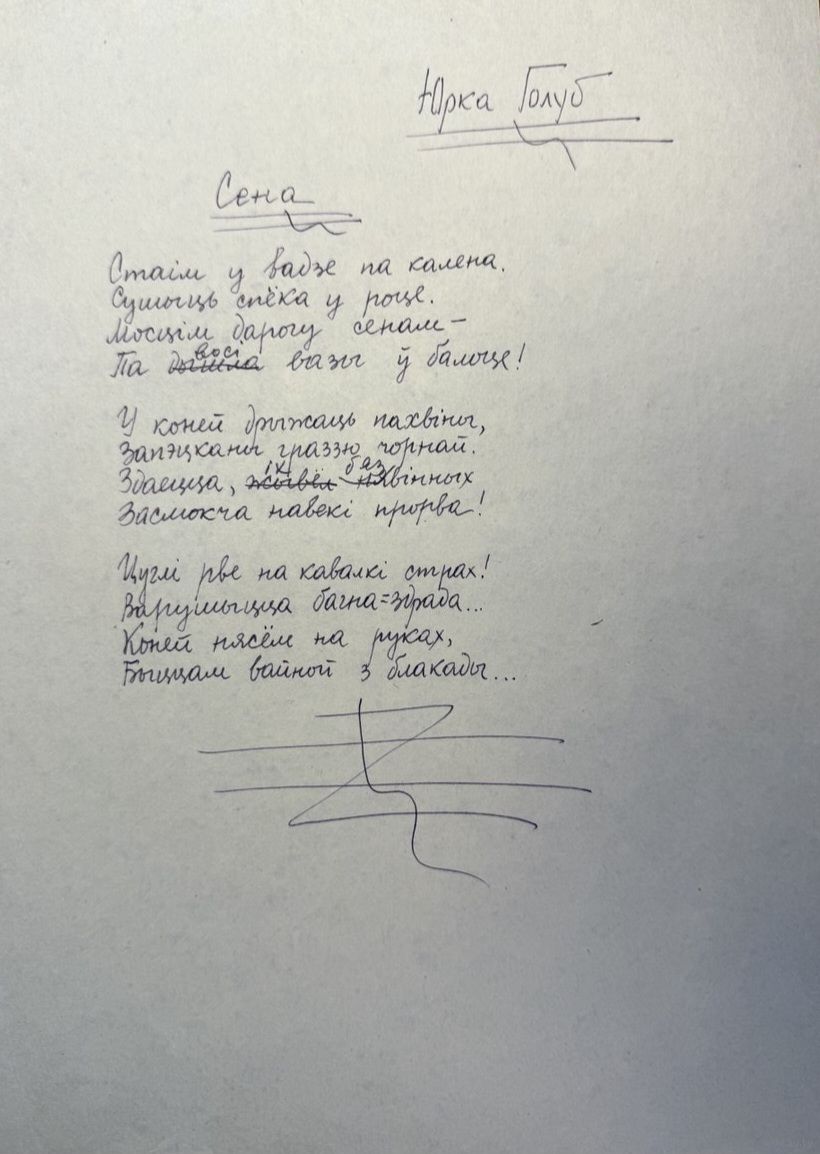 Юрка Голуб
Сена
Стаім у вадзе па калена.
Сушыць спёка у роце.
Мосцім дарогу сенам –
Па дышла восі вазы ў балоце!
У коней дрыжаць пахвіны,
Запэцканы граззю чорнай.
Здаецца, жывёл іх бязвінных
Засмокча навекі прорва!
Цуглі рве на кавалкі страх!
Варушыцца багна=здрада...
Коней нясём на руках,
Быццам вайной з блакады...